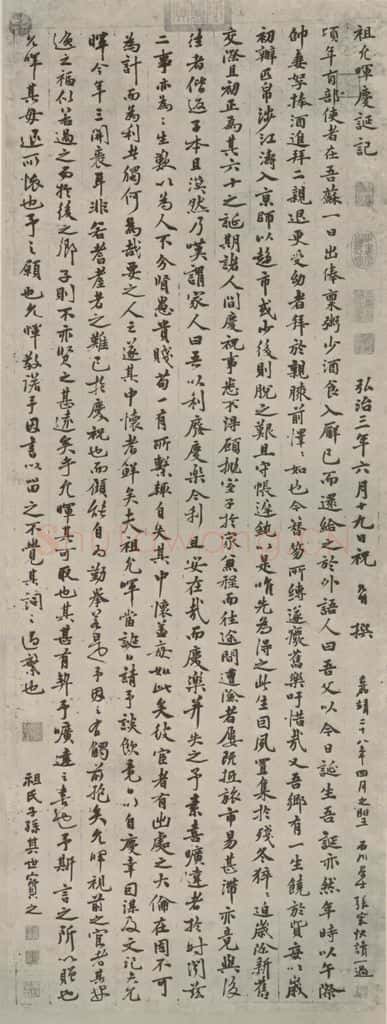 祖允暉慶誕記 弘治三年六月十九日祝 撰
嘉靖二十八年四月之望 石川 張寰快讀一過
頃年有部使者在吾蘇一日出俸稟粥少酒食入廨已而還給之於外語人曰吾父以今日誕生吾誕亦然年時以午際
帥妻孥捧酒進拜二親退更受幼者拜於親膝前懌懌如也今替笏所縛遂廢舊樂吁惜哉又吾鄉有一生饒於資每以歲
初辦匹帛涉江濤入京師以趨市或少後則脫之艱且守帳遲鈍是唯先為得之此生因夙置集於殘冬猝猝迫歲除新舊
交際且初正為其六十之誕期諸人間慶祝事悉不得顧拋室子於家兼程而往途間遭者屢所抵旅市易甚滯亦竟與後
往者偕返子本且漠然乃嘆謂家人曰吾以利廢慶樂今利且安在哉而慶樂并失之予素喜曠達者於時閱茲
二事亦為之生嘆以為人不分賢愚貴賤苟一有所繫輒自失其中懷蓋每如此矣彼官者有出處之大倫在固不可
為計而為利者獨何為哉要之人之遂其中懷者鮮矣夫祖允暉當誕日請予談飲竟日以自慶幸因謀及文記之允
暉今年三耳非若耆耋者之難已於慶祝也而傾能自力勤拳若是予因之有觸前抱矣允暉視前之官者其好
遂之福似若過之而於後之鄉子則不亦賢之甚遠矣乎允暉其可取也其甚有契予曠達之喜也予斯言之所以贈也
允暉其毋忘所懷也予之願也允暉敬諾予因書以留之不覺其詞之過繁也
祖氏子孫其世寶之